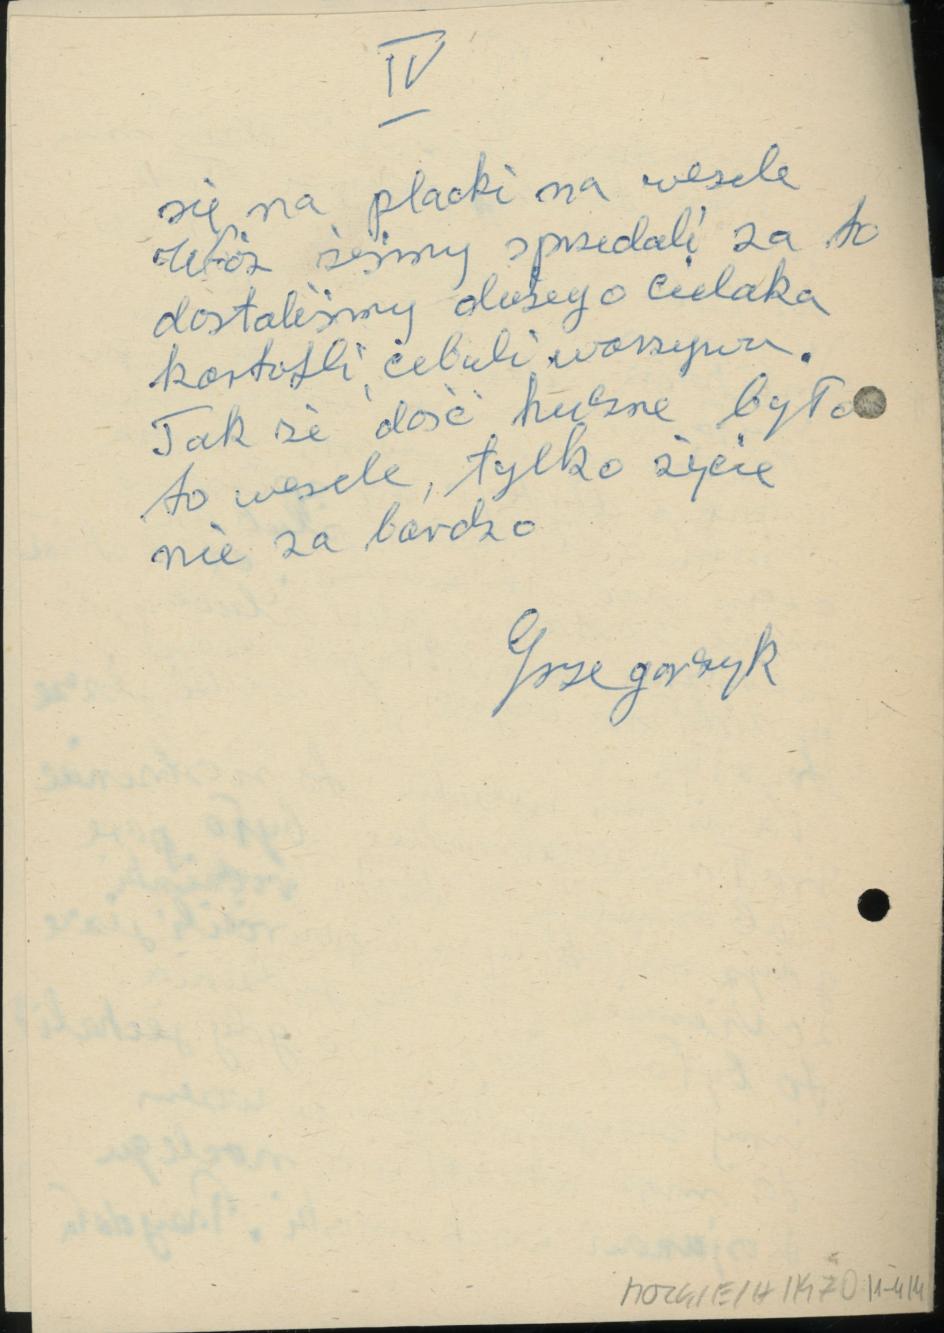 IV
się na placki na wesele
Wóz żeśmy sprzedali za to
dostaliśmy dużego cielaka
kartofli, cebuli, warzywa.
Tak że dość huczne było
to wesele, tylko życie
nie za bardzo
Grzegorzyk